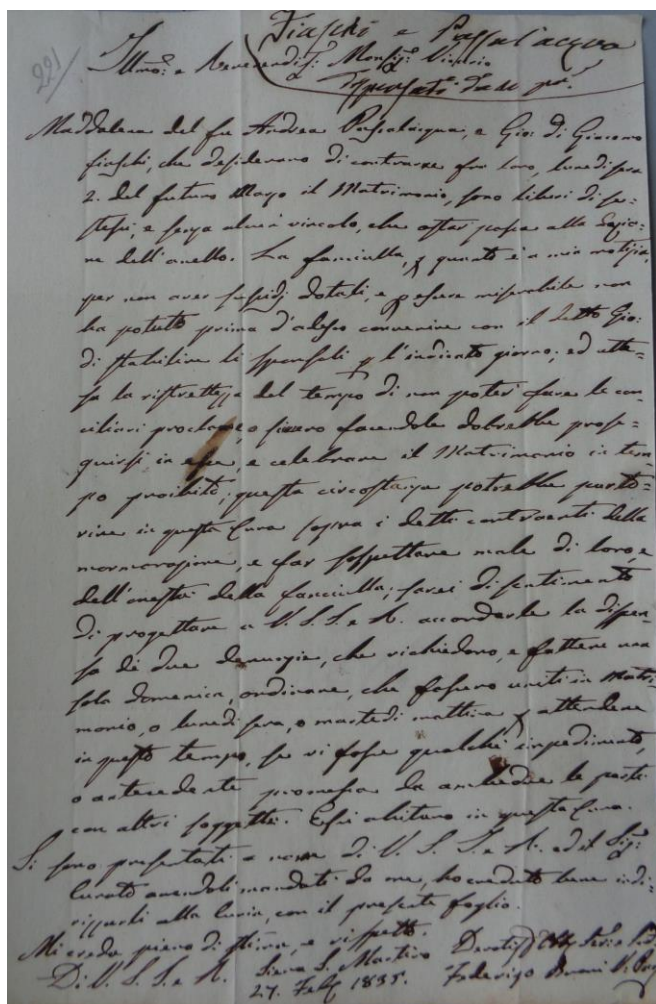 Fiaschi e Passalacqua
221
Illmo: e Reverendiss: Monsig: Vicario
Maddalena del fu Andrea Passalacqua, e Gio: di Giacomo
Fiaschi, che desiderano di contrarre fra loro, lunedì sera
2. del futuro il Matrimonio, sono liberi di se-
stessi, e senza alcun vincolo, che ostar possa alla
ne dell'anello. La fanciulla, p quanto è a mia notizia,
per non aver sussidj dotali, e essere miserabile non
ha potuto prima d'adesso convenire con il detto Gio:
di stabilire li sponsali p l'indicato giorno; ed atte-
sa la ristrettezza del tempo di non poter fare le con-
ciliari proclame, o facendole dovrebbe prose-
guirsi in esse, e celebrare il Matrimonio in tem-
po proibito; questa circostanza potrebbe parto-
rire in questa Cura sopra i detti contraenti della
mormorazione, e far sospettare male di loro, e
dell'onestà della fanciulla; sarei di sentimento
di progettare a V. S. I. e R. accordarle la dispen-
sa di due denunzie, che richiedono, e fattene una
sola domenica, ordinare, che fossero uniti in Matri-
monio, o lunedì sera, o martedì mattina p attendere
in questo tempo, se vi fosse qualche impedimento,
o antecedente promessa da ambedue le parti
con altri soggetti. Essi abitano in questa Cura.
Si sono presentati a nome di V. S. I. e R. ed il Sig:
Curato avendoli mandati da me, ho creduto bene indi-
rizzarli alla Curia, con il presente foglio.
Mi creda pieno di stima, e rispetto.
Di V. S. I. e R. Siena S. Martino
27. 1835. Federigo